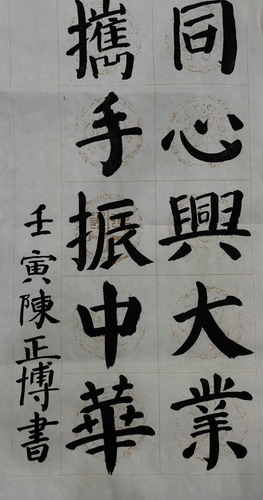 同心興大業
攜手振中華
壬寅陳正博書